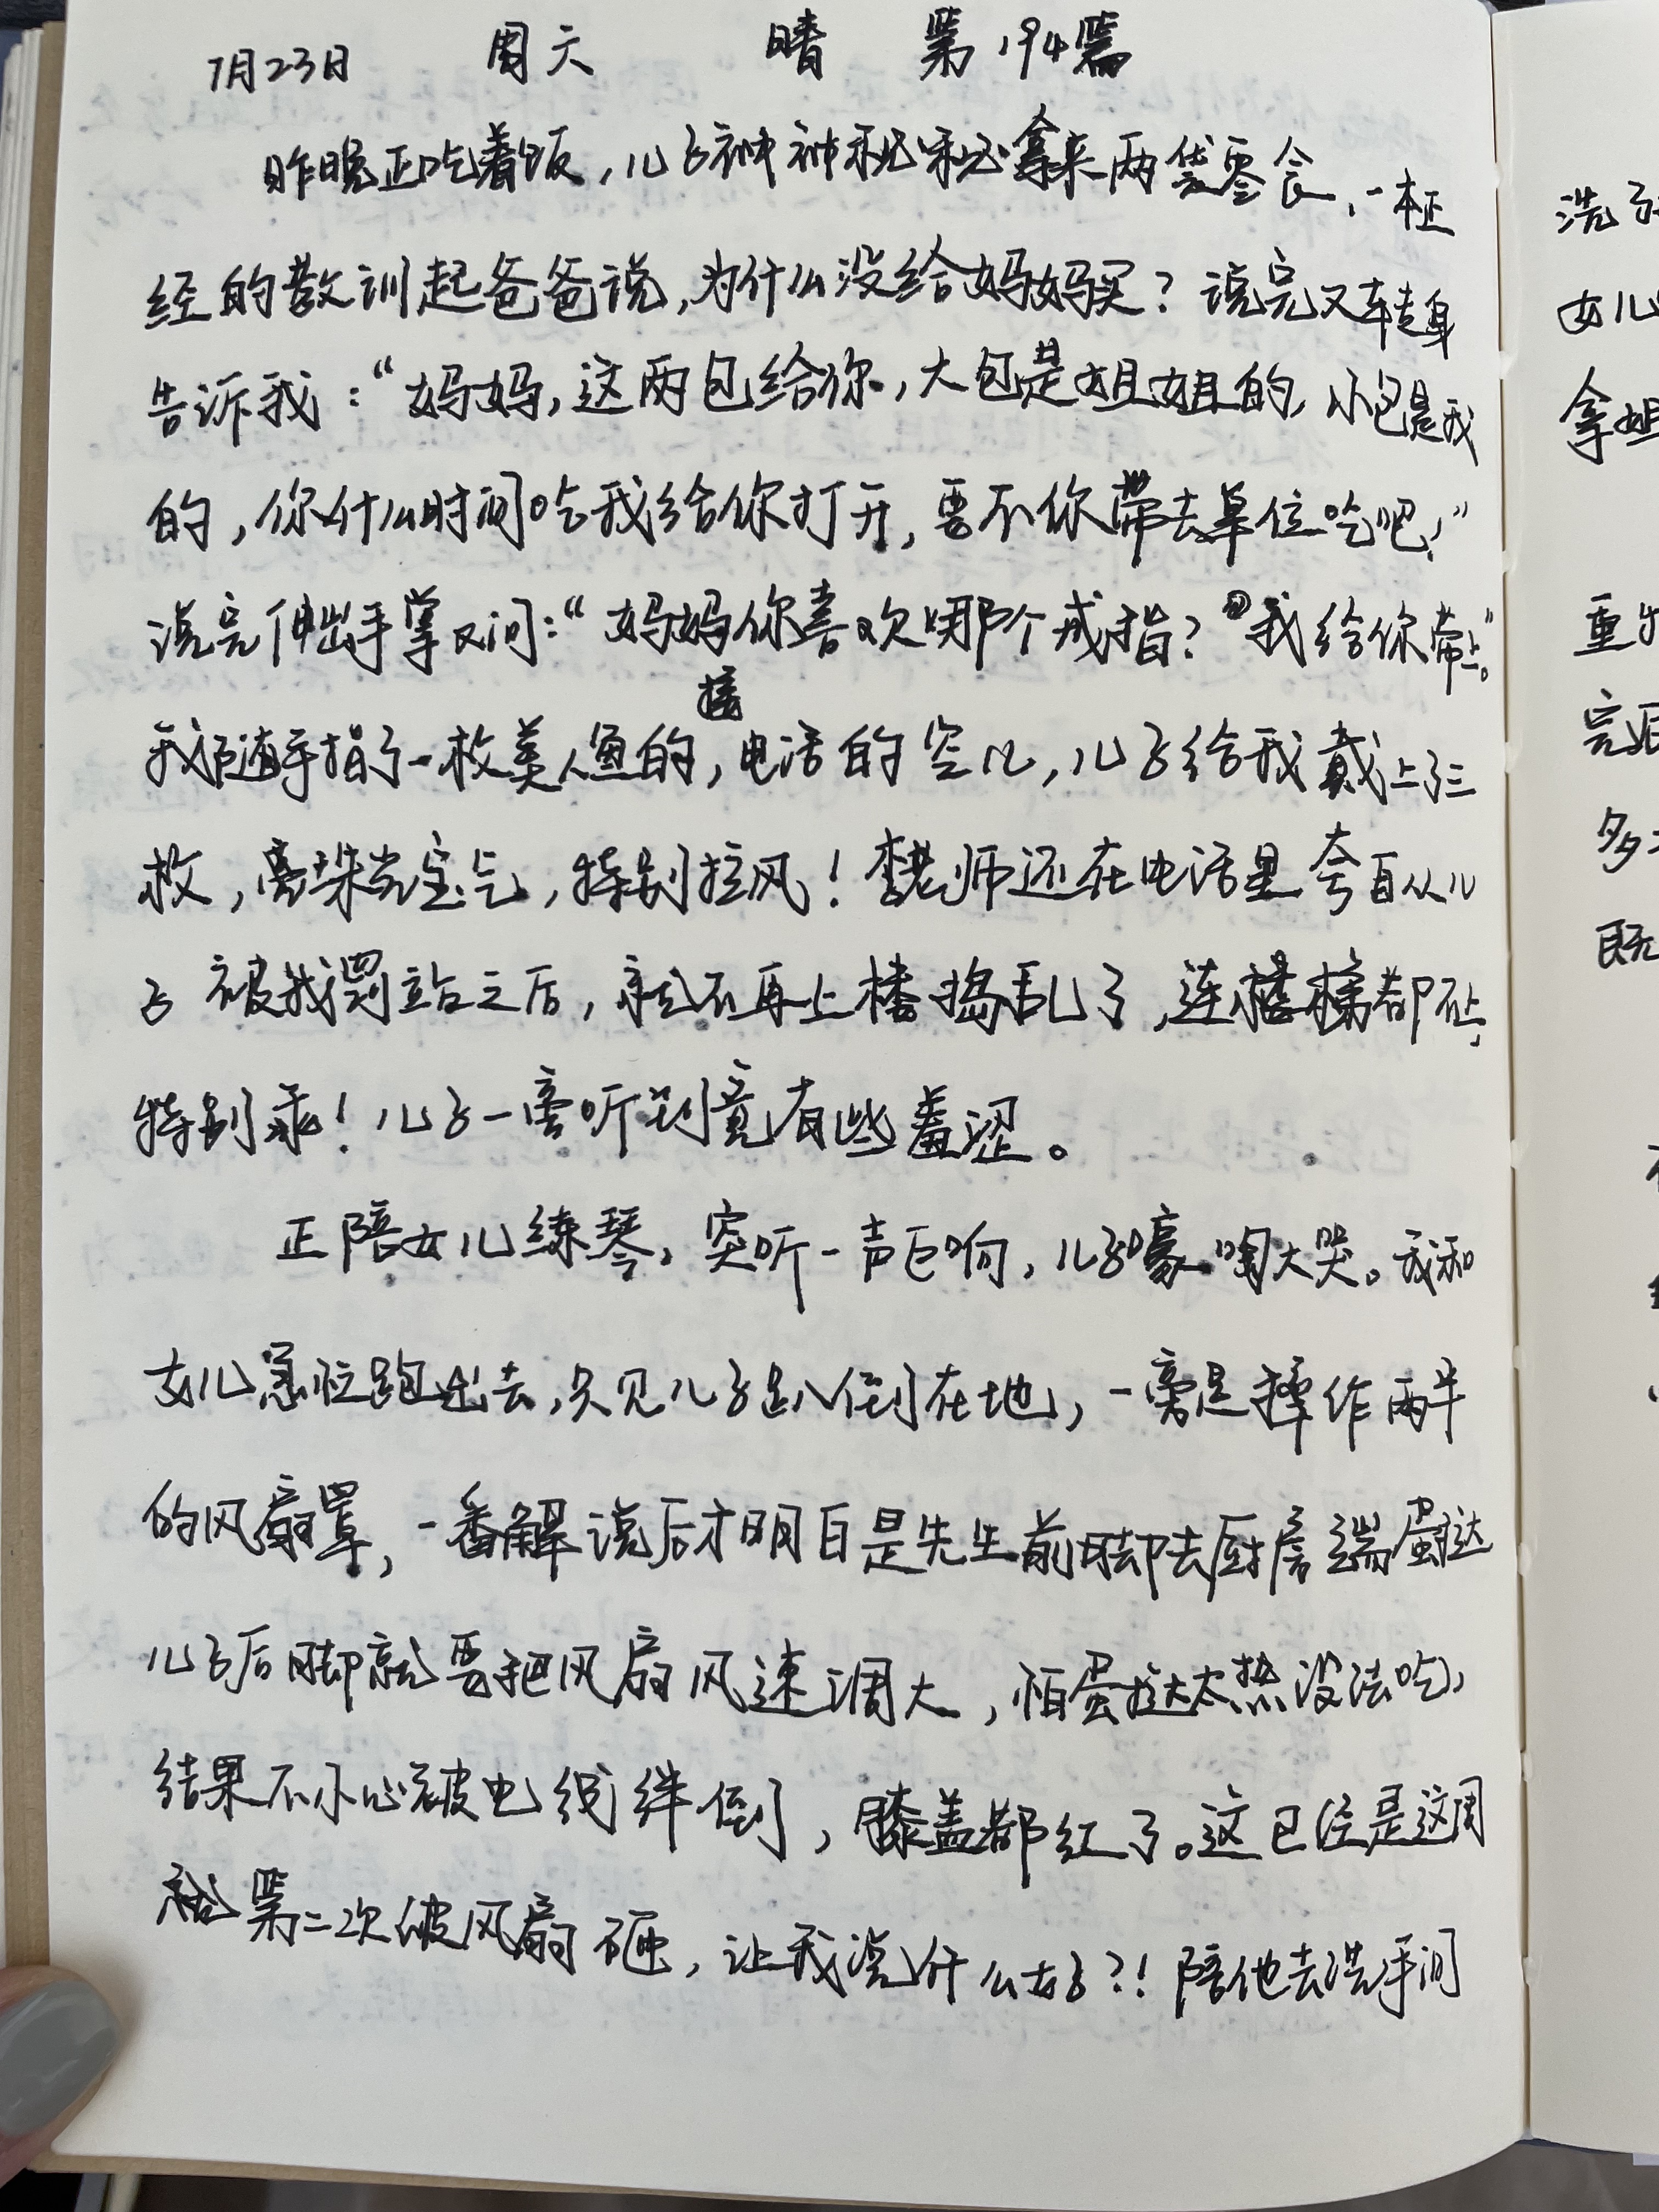 7月23日 周六 晴 第194篇
昨晚正吃着饭,儿子神神秘秘拿来两袋零食,一本正
经的教训起爸爸说,为什么没给妈妈买?说完又转身
告诉我:“妈妈,这两包给你,大包是姐姐的,小包是我
的,你什么时间吃我给你打开,要不你带去单位吃吧!”
说完伸出手掌又问:“妈妈你喜欢哪个戒指?我给你带上。”
我随手指了一枚美人鱼的,接电话的空儿,儿子给我戴上了三
枚,亮珠光宝气,特别拉风!李老师还在电话里夸自从儿
子被我罚站之后,就不再上楼捣乱了,连楼梯都不上,
特别乖!儿子一旁听到竟有些羞涩。
正陪女儿练琴,突听一声巨响,儿子嚎啕大哭。我和
女儿急忙跑出去,只见儿子趴倒在地,一旁是摔作两半
的风扇罩,一番解说后才明白是先生前脚去厨房端蛋挞
儿子后脚就要把风扇风速调大,怕蛋挞太热没法吃,
结果不小心被电线绊倒,膝盖都红了。这已经是这周
第二次被风扇砸,让我说什么好?!陪他去洗手间
洗
女儿
拿姐
重
完后
多
既